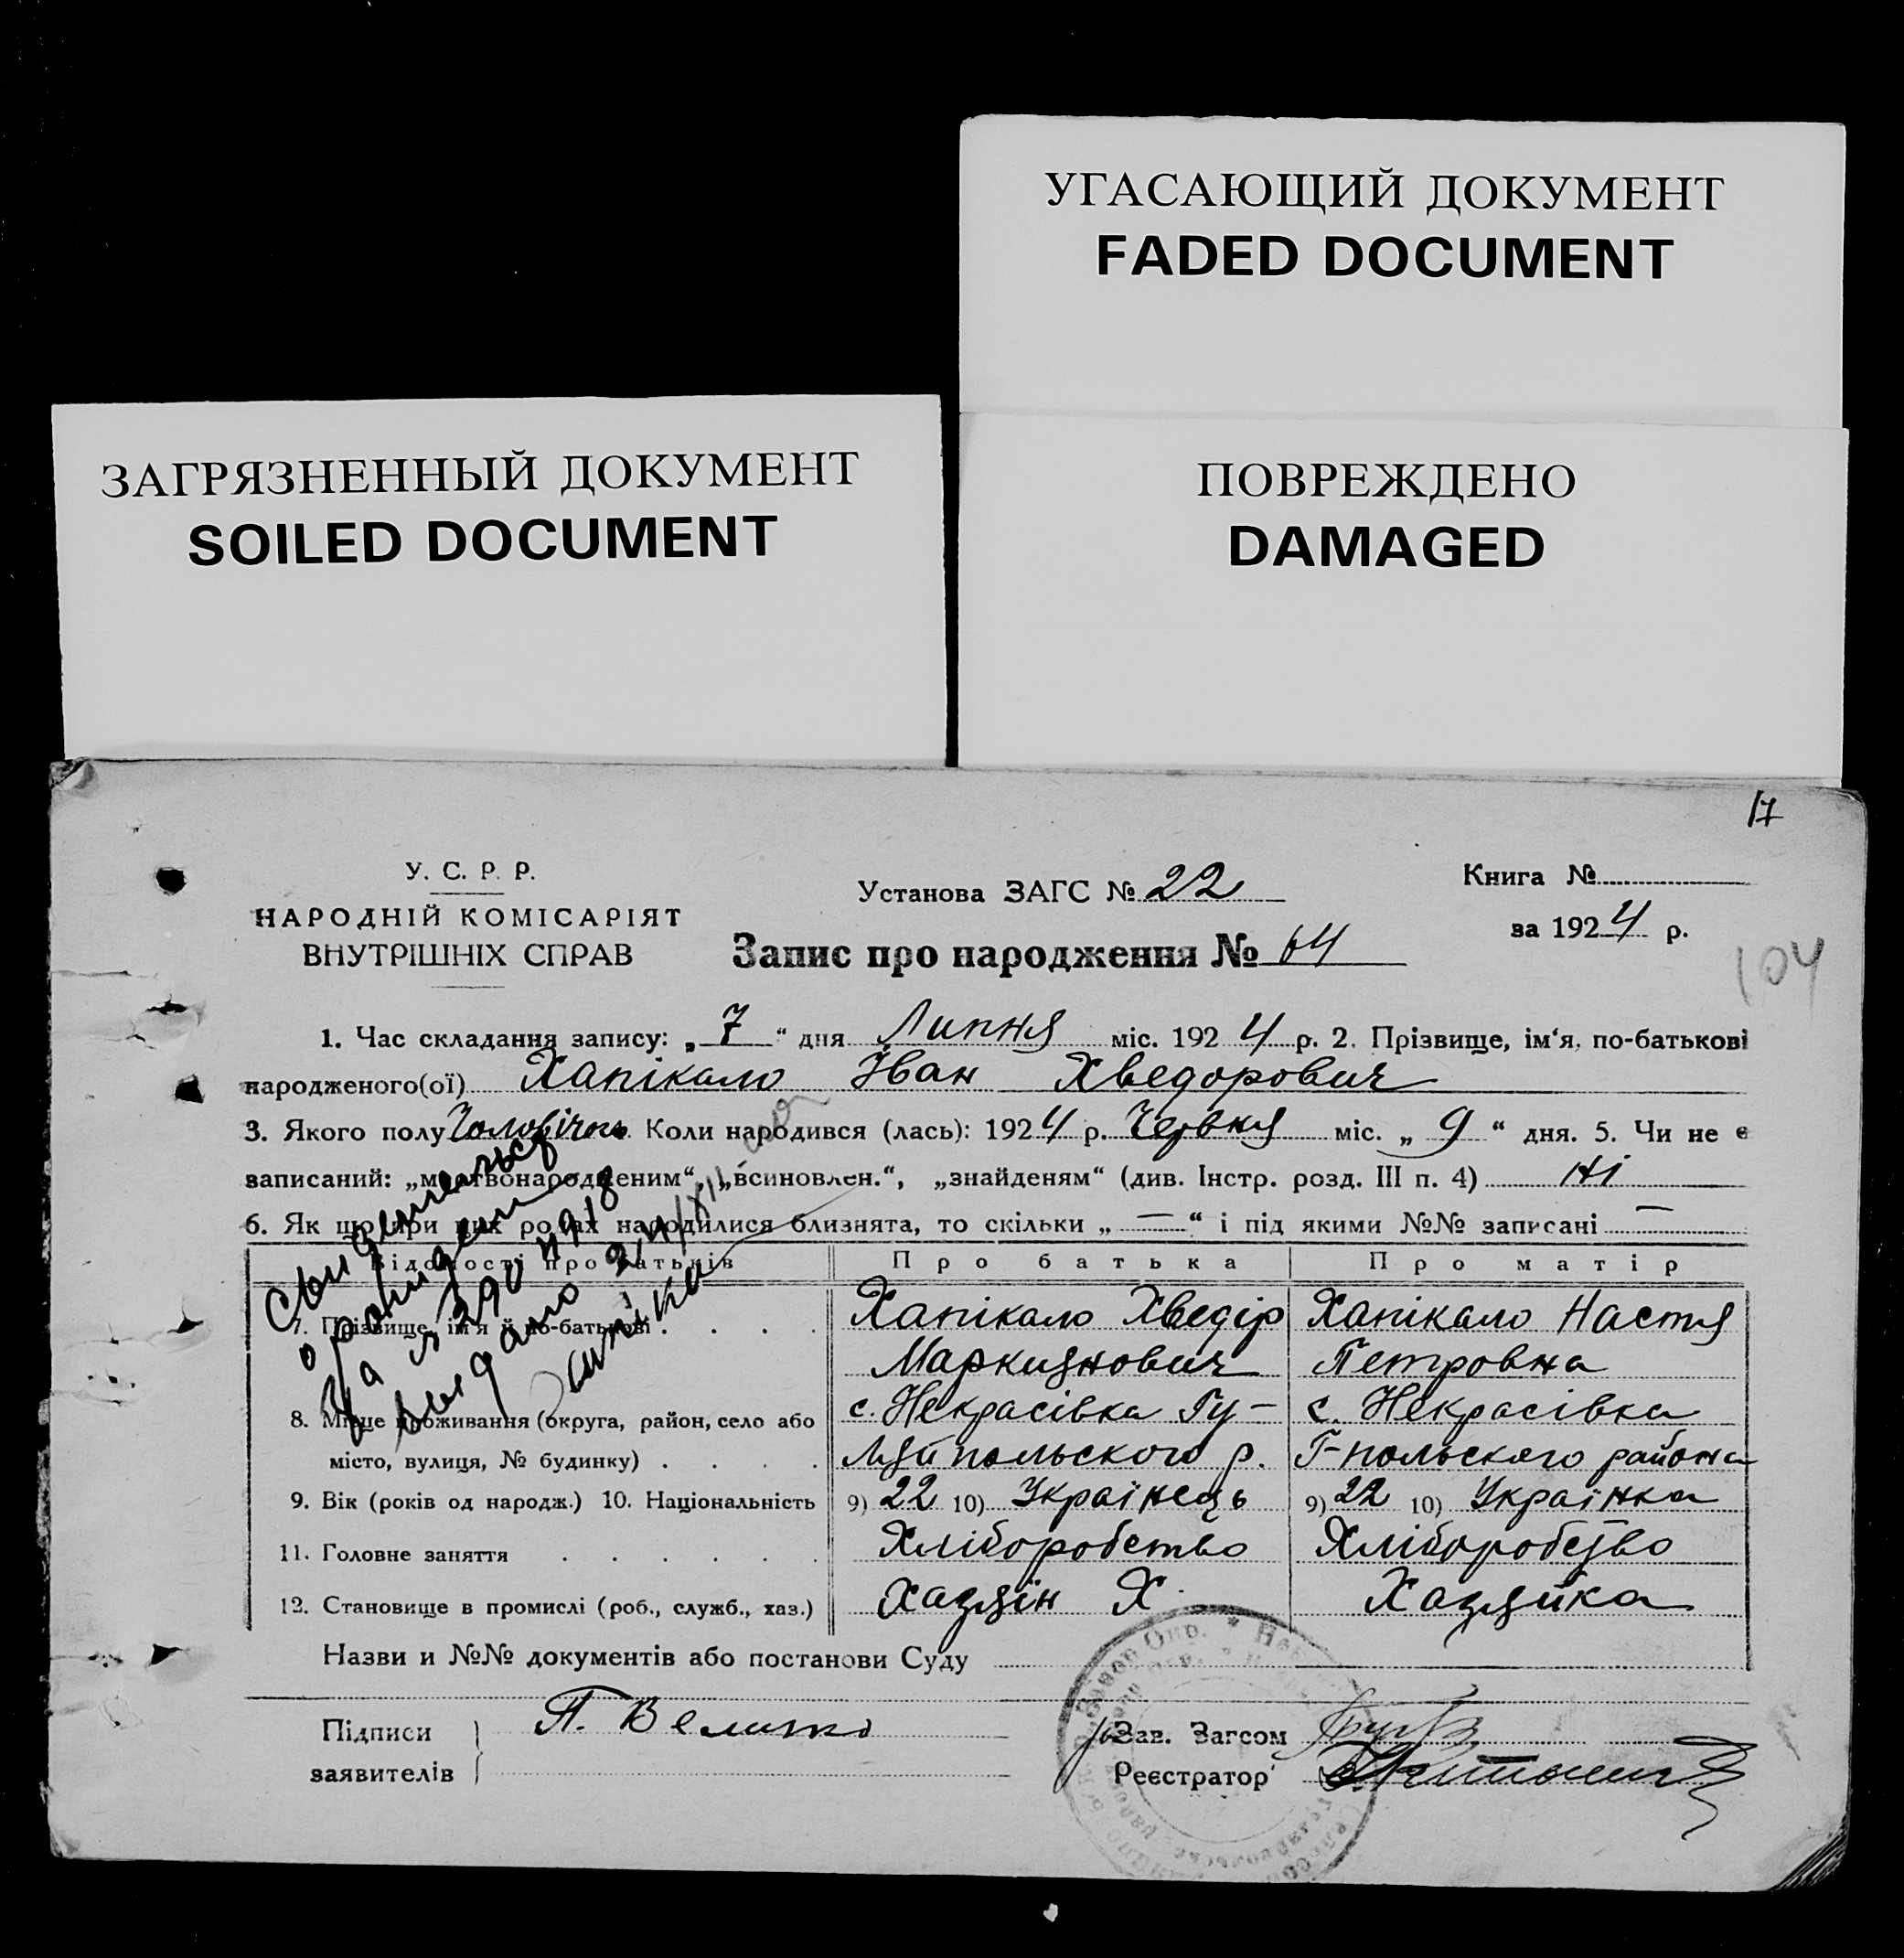 УГАСАЮЩИЙ ДОКУМЕНТ
FADED DOCUMENT
ЗАГРЯЗНЕННЫЙ ДОКУМЕНТ
SOILED DOCUMENT
ПОВРЕЖДЕНО
DAMAGED
17
У. С. Р. Р.
НАРОДНІЙ КОМІСАРІЯТ
ВНУТРІШНІХ СПРАВ
Установа ЗАГС № 22
Запис про народження № 64
Книга №
за 1924 р.
104
1. Час складання запису: „ 7 “ дня Липня міс. 1924 р. 2. Прізвище, ім‘я, по-батькові
народженого(ої) Хапікало Іван Хведорович
3. Якого полу Чоловічого Коли народився (лась): 1924 р. Червня міс. „ 9 “ дня. 5. Чи не є
записаний: „мертвонародженим“, „всиновлен.“, „знайденям“ (див. Інстр. розд. III п. 4) Ні
6. Як що при цих родах народилися близнята, то скільки „ — “ і під якими №№ записані —
Свидетельство
о рождении
На № 390 4918
выдано 24/XII
Відомості про батьків
Про батька
Про матір
7. Прізвище, ім‘я й по-батькові
Хапікало Хведір
Маркиянович
Хапікало Настя
Петровна
8. Місце проживання (округа, район, село або
місто, вулиця, № будинку)
с. Некрасівка Гу-
ляйпольского р.
с. Некрасівка
Г-польского района
9. Вік (років од народж.) 10. Національність
9) 22 10) Українець
9) 22 10) Українка
11. Головне заняття
Хліборобство
Хліборобство
12. Становище в промислі (роб., служб., хаз.)
Хазяїн Х.
Хазяйка
Назви и №№ документів або постанови Суду
Підписи
заявителів
П. Величко
Зав. Загсом
Реєстратор